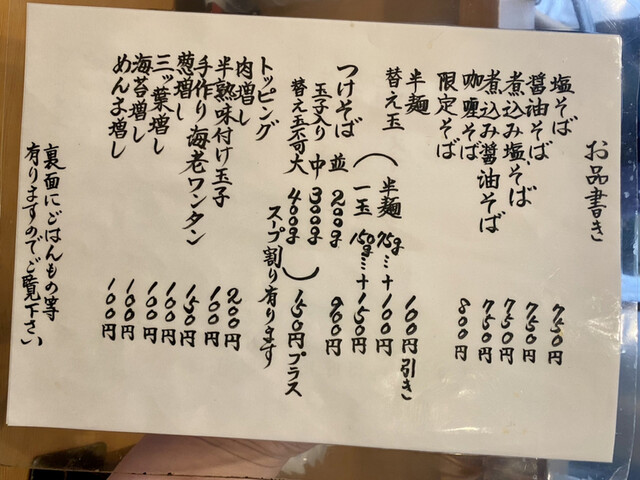 お品書き
塩そば 750円
醤油そば 750円
煮込み塩そば 750円
煮込み醤油そば 750円
咖喱そば 800円
限定そば
半麺 100円引き
替え玉 （半麺 75g…+100円
一玉 150g…+150円
つけそば 並 200g 900円
玉子入り 中 300g
替え玉不可 大 400g ）150円プラス
スープ割り有ります
トッピング
肉増し 200円
半熟味付け玉子 100円
手作り海老ワンタン 150円
葱増し 100円
三ッ葉増し 100円
海苔増し 100円
めんま増し 100円
裏面にごはんもの等
有りますのでご覧下さい